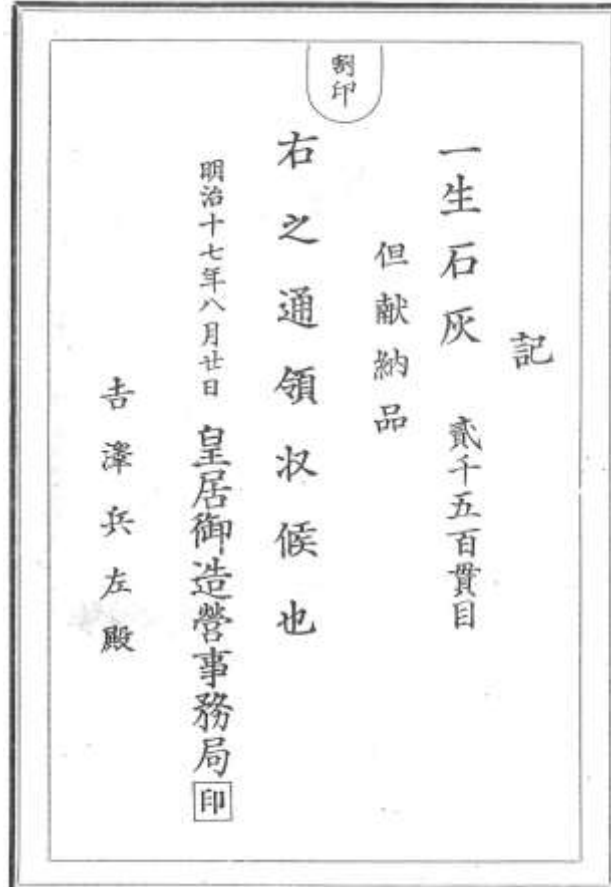 割印
記
一生石灰 貳千五百貫目
但献納品
右之通領収候也
明治十七年八月廿日 皇居御造營事務局 印
吉澤兵左殿